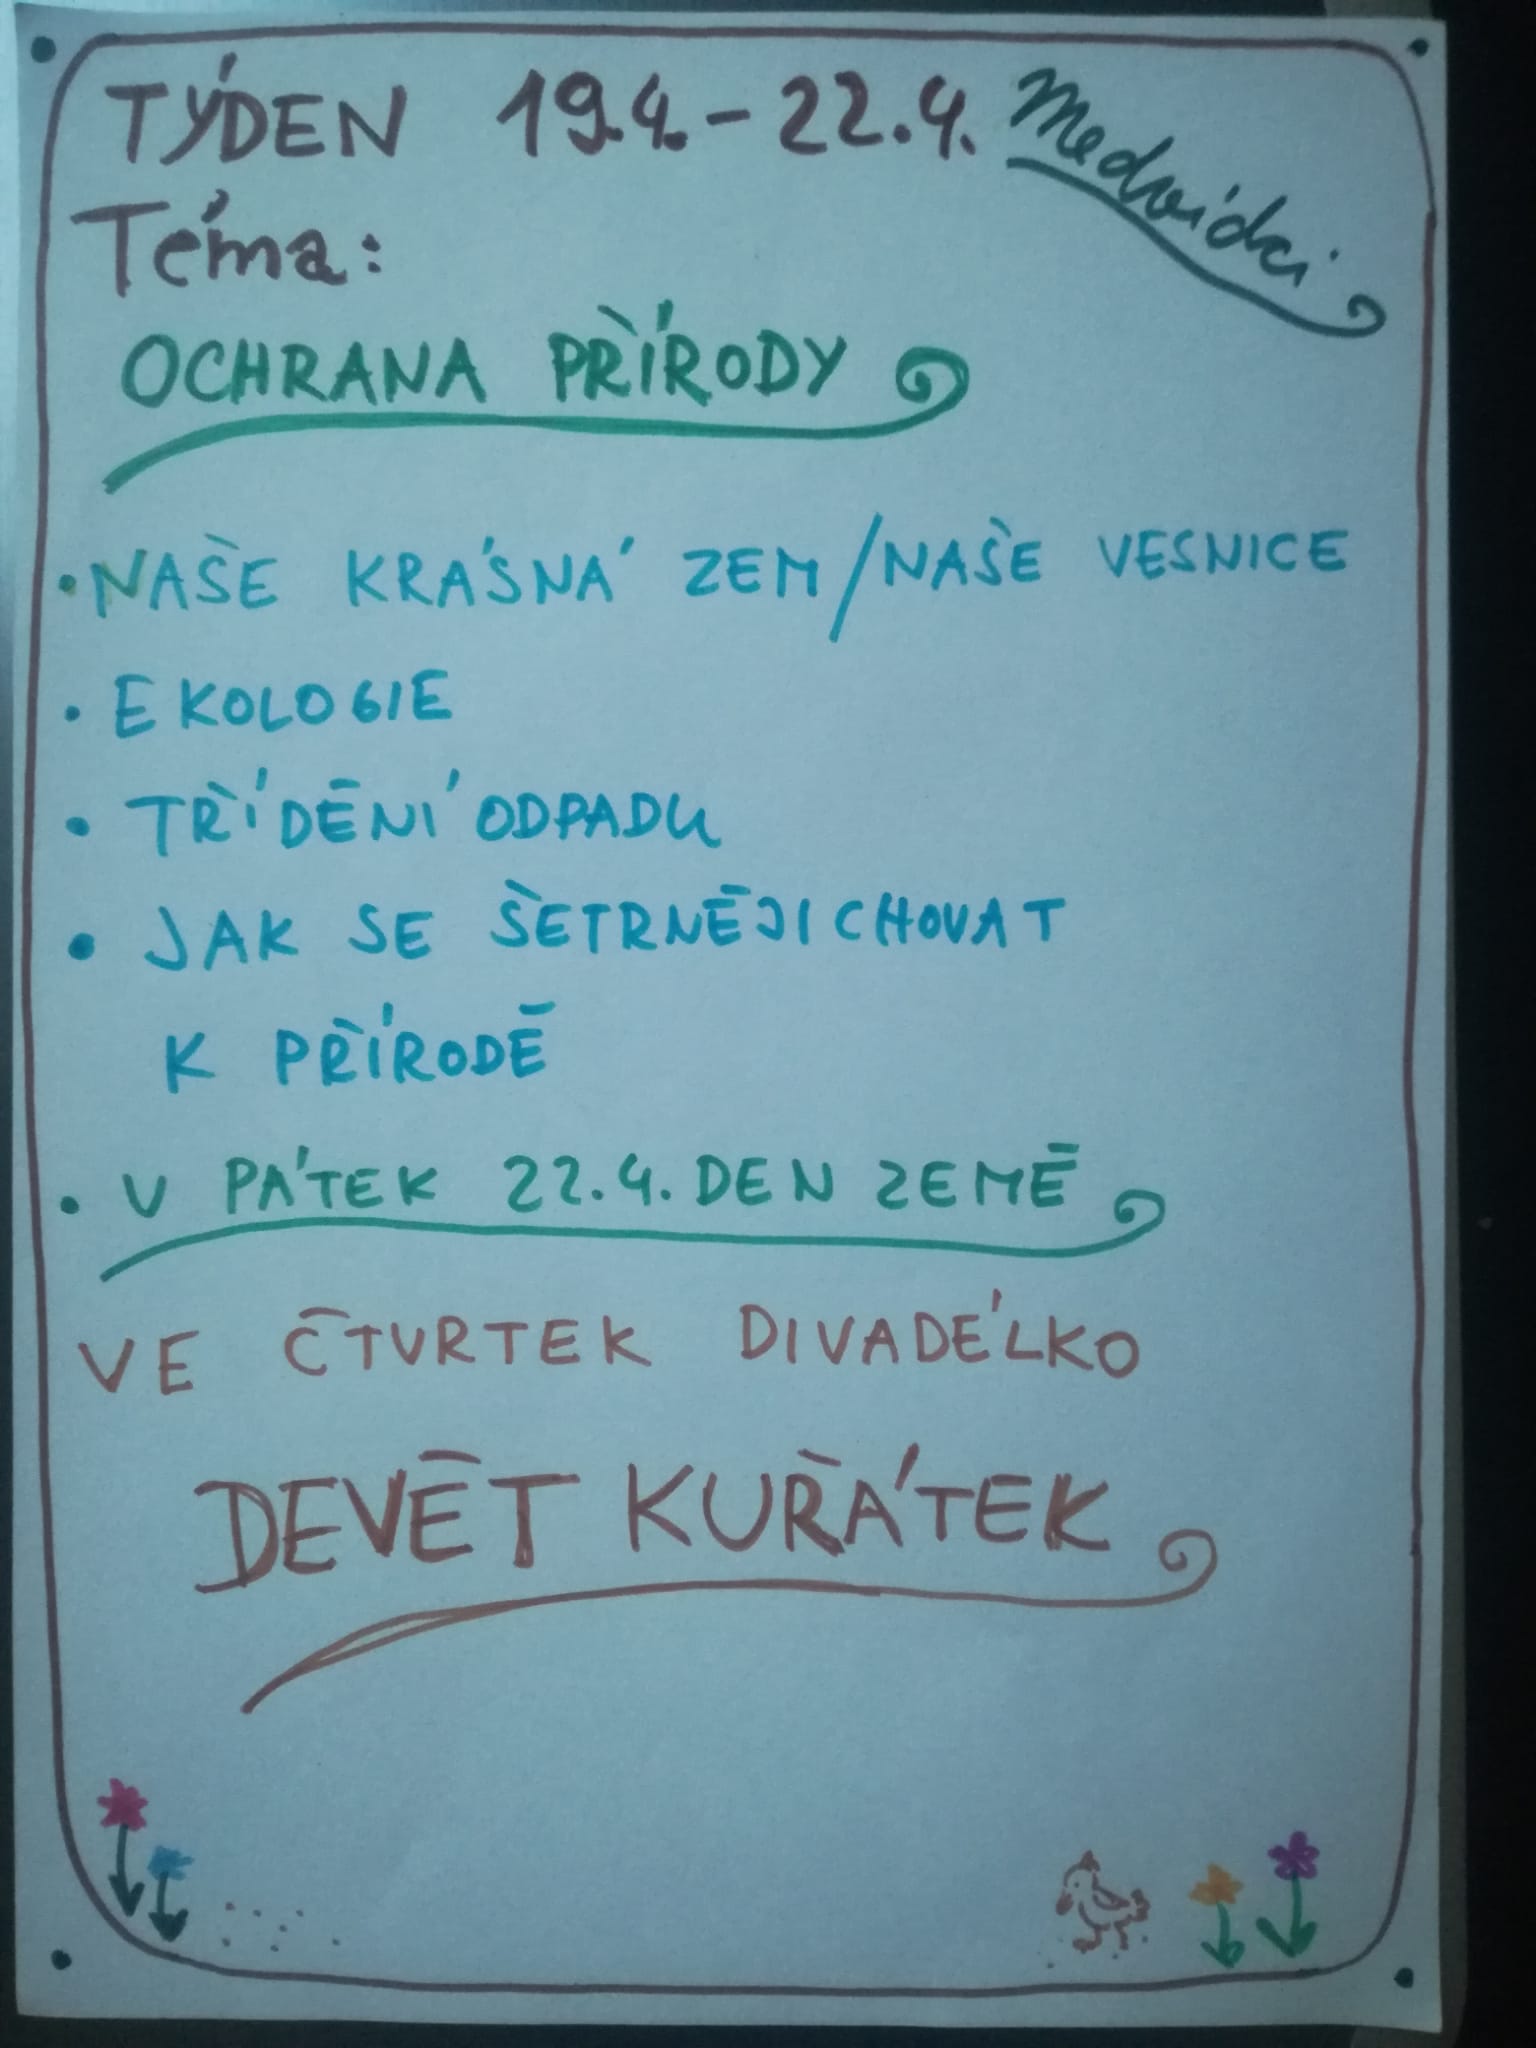 TÝDEN 19.4. - 22.4. Medvídci
Téma:
OCHRANA PŘÍRODY
• NAŠE KRÁSNÁ ZEM/NAŠE VESNICE
• EKOLOGIE
• TŘÍDĚNÍ ODPADU
• JAK SE ŠETRNĚJI CHOVAT
K PŘÍRODĚ
• V PÁTEK 22.4. DEN ZEMĚ
VE ČTVRTEK DIVADÉLKO
DEVĚT KUŘÁTEK